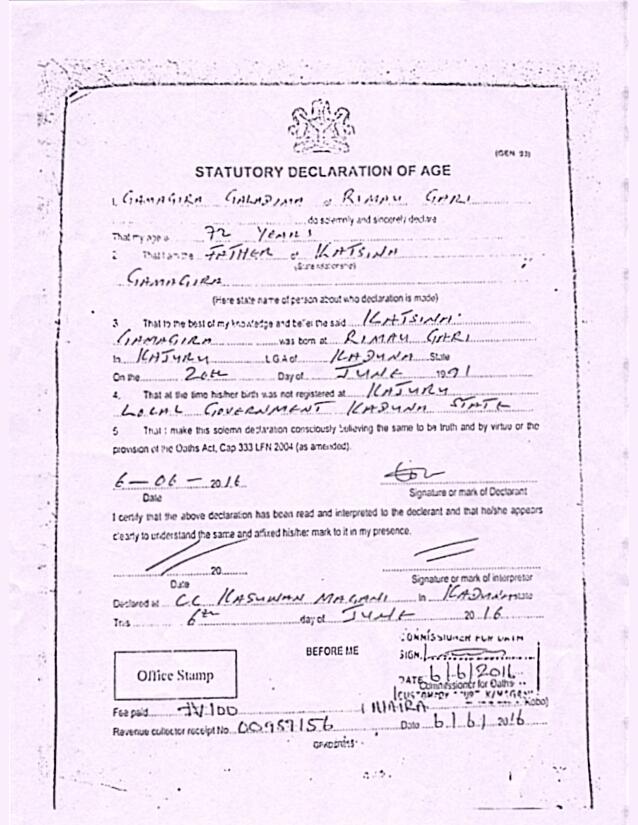 (GEN 33)
STATUTORY DECLARATION OF AGE
I, GAMAGIRA GALADIMA of RIMAU GARI
do solemnly and sincerely declare
That my age is 72 YEARS
2. That I am the FATHER of KATSINA
(State relationship)
GAMAGIRA
(Here state name of person about who declaration is made)
3. That to the best of my knowledge and belief the said KATSINA
GAMAGIRA was born at RIMAU GARI
In KAJURU L.G.A of KADUNA State
On the 20th Day of JUNE 1991
4. That at the time his/her birth was not registered at KAJURU
LOCAL GOVERNMENT KADUNA STATE
5. That I make this solemn declaration consciously believing the same to be truth and by virtue or the
provision of the Oaths Act, Cap 333 LFN 2004 (as amended).
6-06-2016
Date Signature or mark of Declarant
I certify that the above declaration has been read and interpreted to the declerant and that he/she appears
clearly to understand the same and affixed his/her mark to it in my presence.
20
Date Signature or mark of interpretor
Declared at CC KASUWAN MAGANI In KADUNA state
This 6th day of JUNE 2016
BEFORE ME
COMMISSIONER FOR OATH
SIGN.
DATE 6/6/2016
Commissioner for Oaths
CUSTOMARY COURT K/MAGANI
Office Stamp
Fee paid N100 (NAIRA Kobo)
Revenue collector receipt No. 00957156 Date 6/6/2016